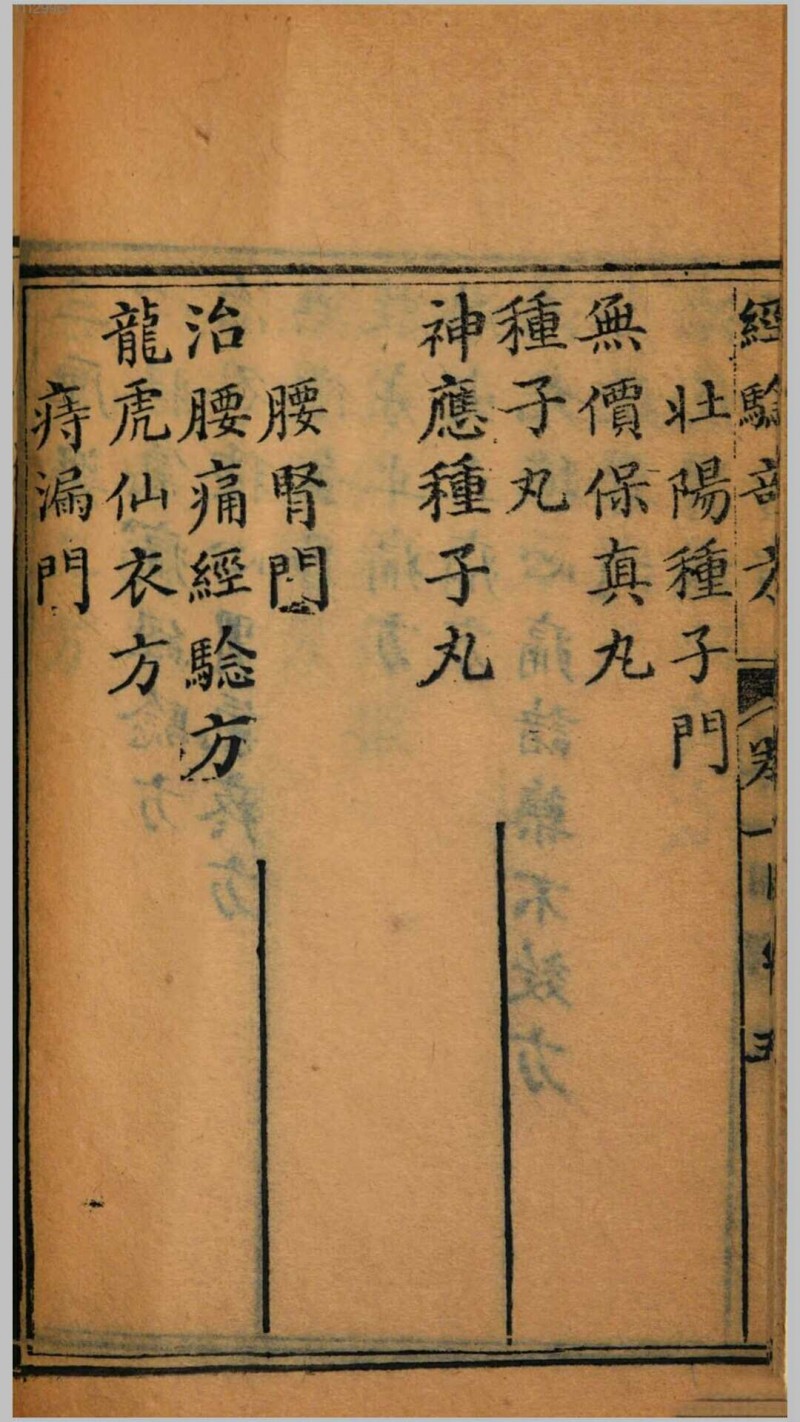 經驗
卷一
五
壯陽種子門
無價保真丸
種子丸
神應種子丸
腰腎門
治腰痛經驗方
龍虎仙衣方
痔漏門